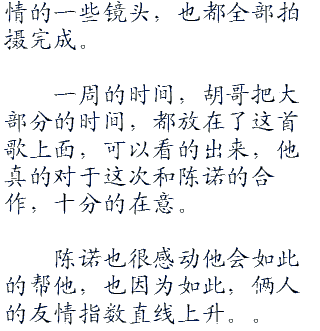 情的一些镜头，也都全部拍
摄完成。
一周的时间，胡哥把大
部分的时间，都放在了这首
歌上面，可以看的出来，他
真的对于这次和陈诺的合
作，十分的在意。
陈诺也很感动他会如此
的帮他，也因为如此，俩人
的友情指数直线上升。。